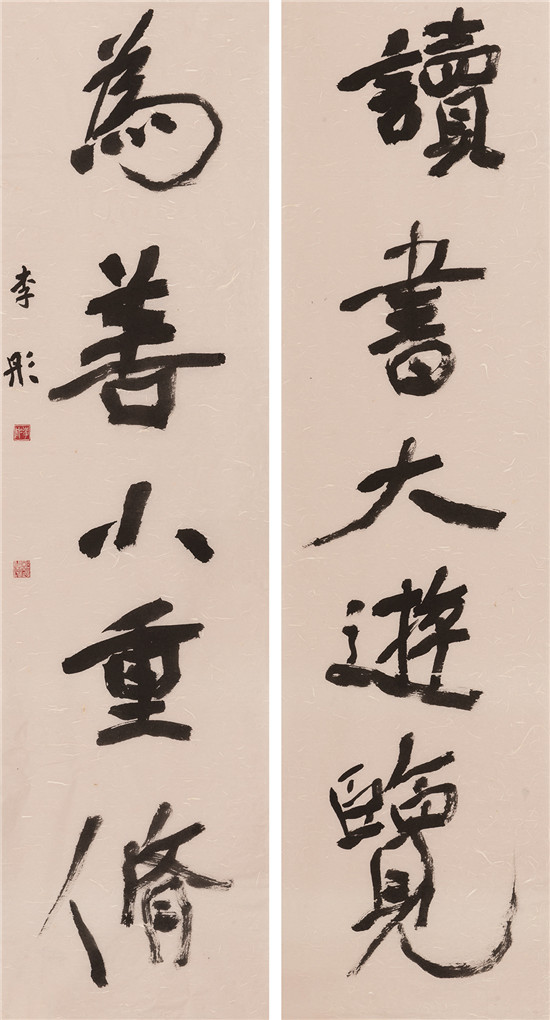 讀書大遊覽
為善小重脩
李彤